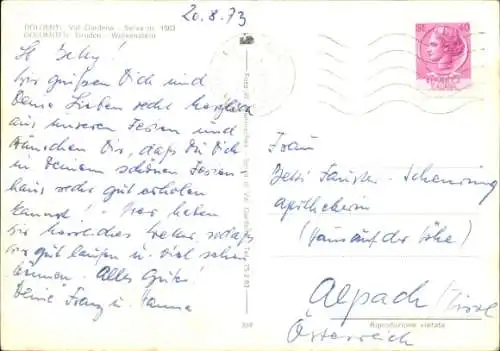 20.8.73
DOLOMITI - Val Gardena - Selva m. 1563
DOLOMITEN - Gröden - Wolkenstein
Wir grüßen Dich und
Deine Lieben recht herzlich
aus unseren Ferien und
wünschen Dir, daß Du Dich
in Deinem schönen Ferien-
haus recht gut erholen
kannst! Wir haben
herrliches Wetter, sodaß
wir gut laufen u. viel sehen
können. Alles Gute!
Deine Franz u. Hanna
Frau
Apothekerin
(Haus auf der Höhe)
Alpach/Tirol
Österreich
Riproduzione vietata